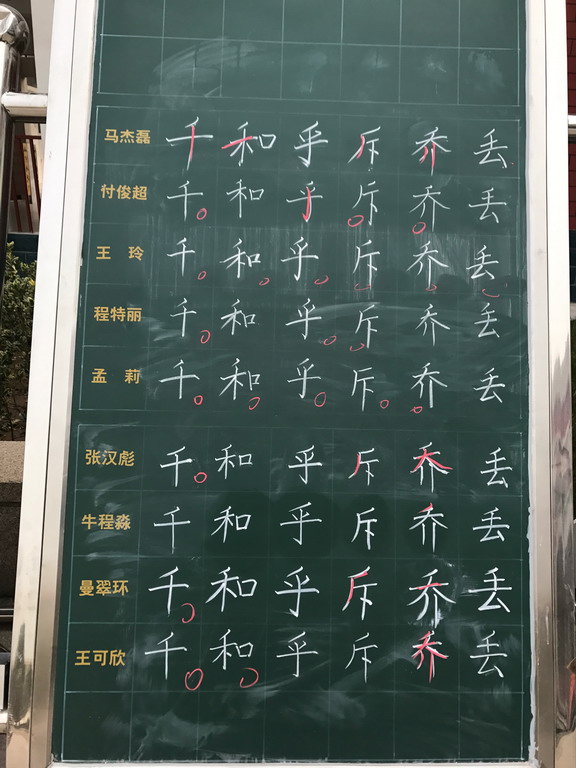 马杰磊 千 和 乎 斥 乔 丢
付俊超 千 和 乎 斥 乔 丢
王 玲 千 和 乎 斥 乔 丢
程特丽 千 和 乎 斥 乔 丢
孟 莉 千 和 乎 斥 乔 丢
张汉彪 千 和 乎 斥 乔 丢
牛程淼 千 和 乎 斥 乔 丢
曼翠环 千 和 乎 斥 乔 丢
王可欣 千 和 乎 斥 乔 丢